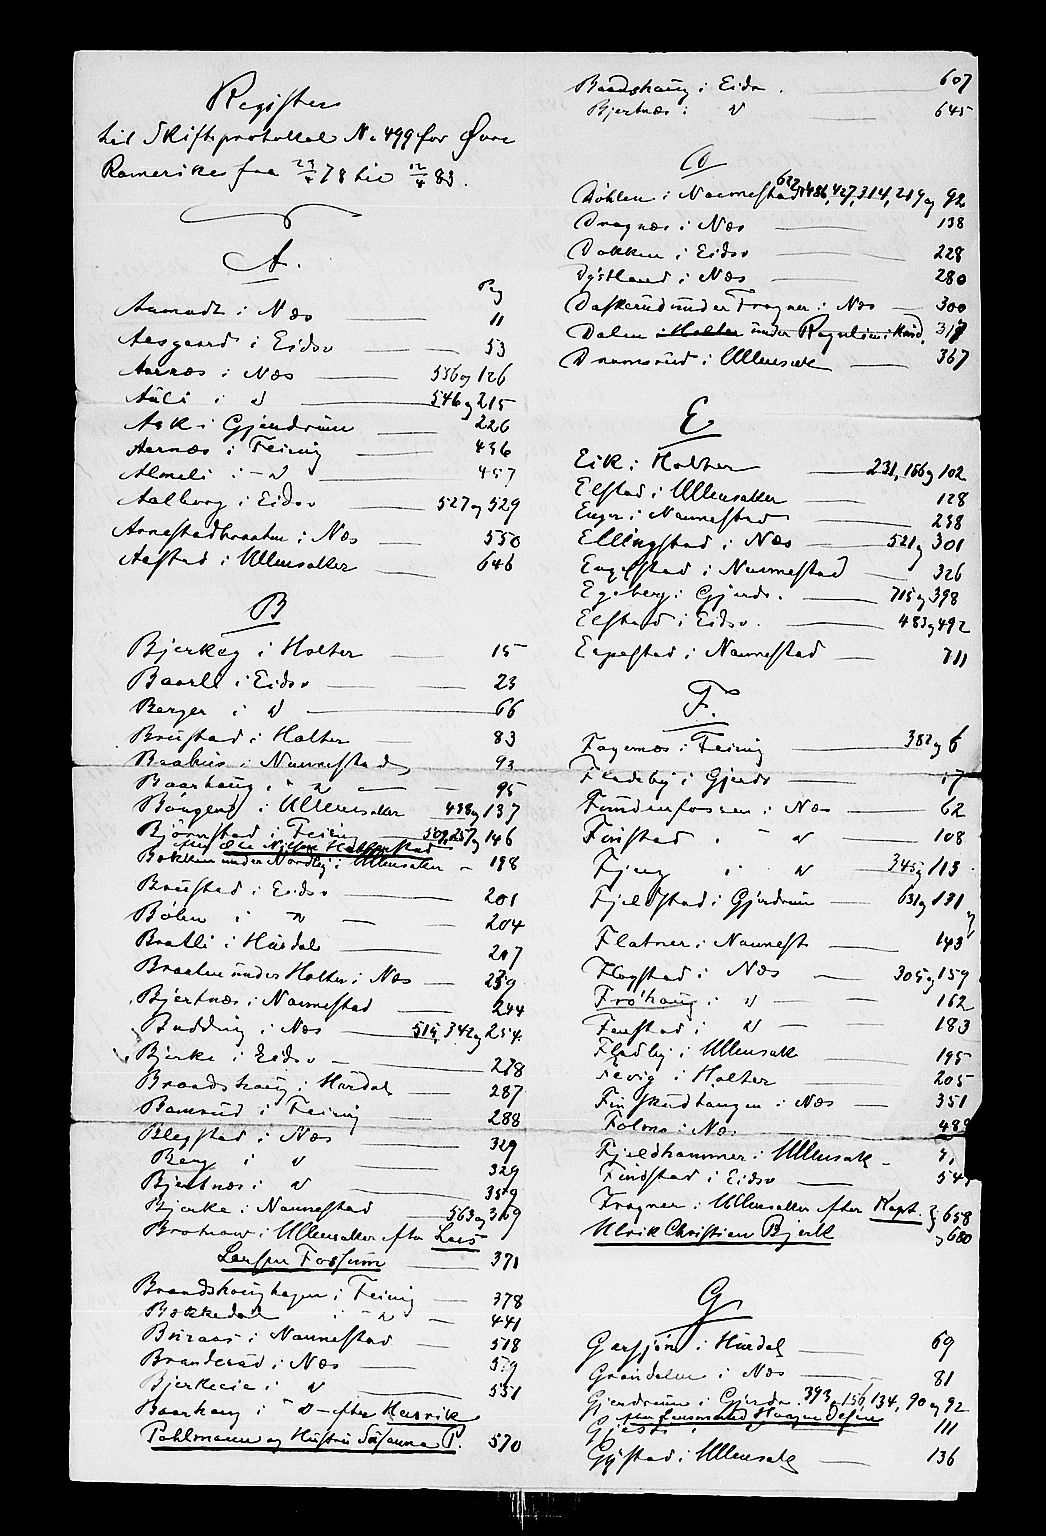 Register
til Skifteprotokol No 499 for Øvre
Romerike fra 23/4 78 til 12/4 83.
A.
Pag
Aamodt i Næs 11
Aasgaard i Eidsv 53
Aarnæs i Næs 536 og 126
Auli i " 546 og 215
Ask i Gjerdrum 226
Aarnæs i Feiring 436
Almeli i " 457
Aalborg i Eidsv 527 og 529
Arnestadbraaten i Næs 550
Aastad i Ullensaker 646
B
Bjerkeg i Holter 15
Baarli i Eidsv 23
Berger i " 66
Brustad i Holter 83
Braahus i Nannestad 93
Baarhaug i " 95
Baugerud i Ullensaker 438 og 137
Bjørnstad i Feiring 509, 257 og 146
efter Ole Nilsen
Bakken under Nordby i Ullensaker 198
Brustad i Eidsv 201
Bølen i " 204
Bratli i Hurdal 217
Braaten under Holter i Næs 239
Bjertnæs i Nannestad 244
Budding i Næs 515, 342 og 254
Bjerke i Eidsv 278
Braadshaug i Hurdal 287
Bamrud i Feiring 288
Blegstad i Næs 329
Berg i " 329
Bjertnæs i " 359
Bjerke i Nannestad 563 og 369
Brotnow i Ullensaker efter Lars
Larsen Fossum 371
Braadshaughagen i Feiring 378
Bækkedal i " 441
Buraas i Nannestad 518
Branderud i Næs 519
Bjerkeeie i " 551
Baarhaug i " efter Henrik
Pohlmann og Hustru Susanna P. 570
Baadshaug i Eidsv. 607
Bjertnæs i " 645
D
Döhlen i Nannestad 622, 486, 427, 314, 219 og 92
Dragnæs i Næs 138
Dokken i Eidsv 228
Dystland i Næs 280
Daskerud under Fragner i Næs 300
Dalen i Holter under Rognlien i Hurd. 317
Dramsrud i Ullensak 367
E
Eik i Holter 231, 166 og 102
Elstad i Ullensaker 128
Enger i Nannestad 238
Ellingstad i Næs 521 og 301
Engelstad i Nannestad 326
Egeberg i Gjerdr. 715 og 398
Elstad i Eidsv. 483 og 492
Espestad i Nannestad 711
F.
Fagernæs i Feiring 382 og 6
Fladeby i Gjerdr 17
Funderfossen i Næs 62
Finstad i " 108
Fjeng i " 345 og 113
Fjeldstad i Gjerdrum 631 og 131
Flatner i Nannest 143
Flogstad i Næs 305 og 159
Frøhaug i " 162
Fenstad i " 183
Fladby i Ullensak 195
Revig i Holter 205
Finskudtangen i Næs 351
Folvas i Næs 489
Fjeldhammer i Ullensak
Findstad i Eidsv 54
Fragner i Ullensaker efter Kapt. 658
Ulrik Christian Bjerk og 680
G
Garsjøen i Hurdal 69
Grandalen i Næs 81
Gjerdrum i Gjerdr. 393, 156, 134, 90 og 92
efter
Gjesti i 111
Gystad i Ullensak 136